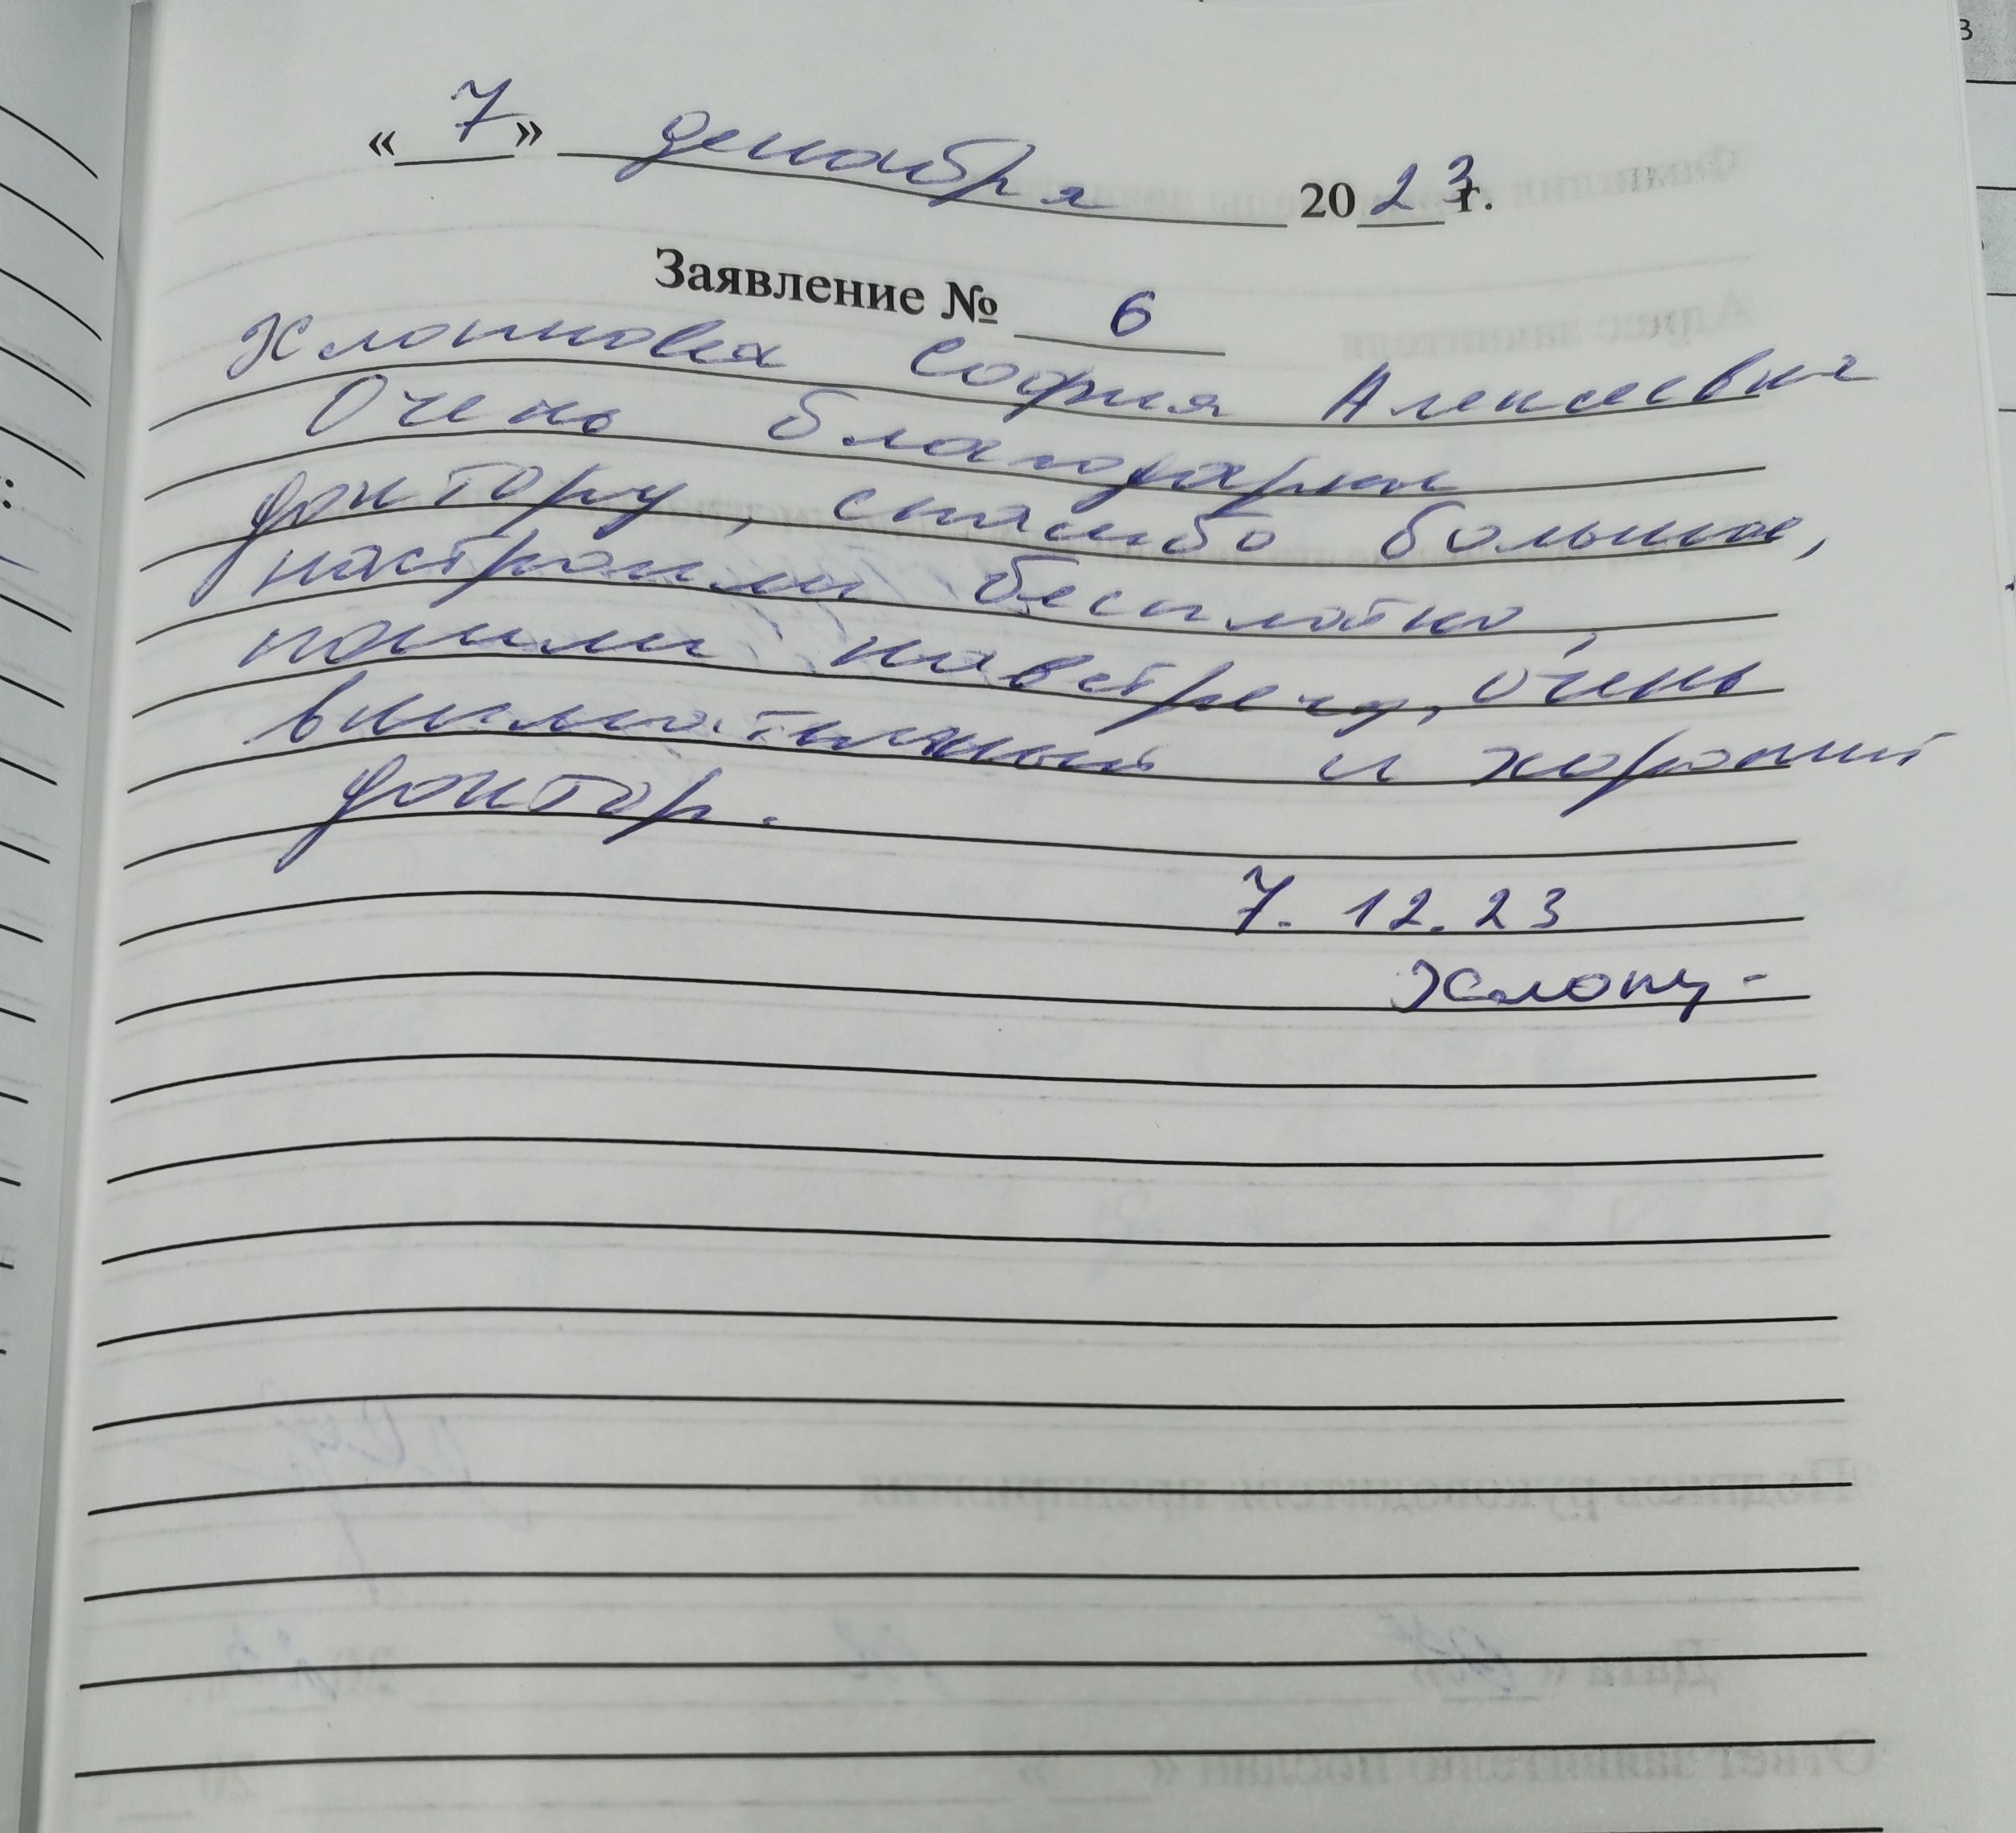 « 7 » декабря 2023 г.
Заявление № 6
Хлопкова София Алексеевна
Очень благодарна
доктору, спасибо большое,
настроили бесплатно,
пошли навстречу, очень
внимательный и хороший
доктор.
7.12.23